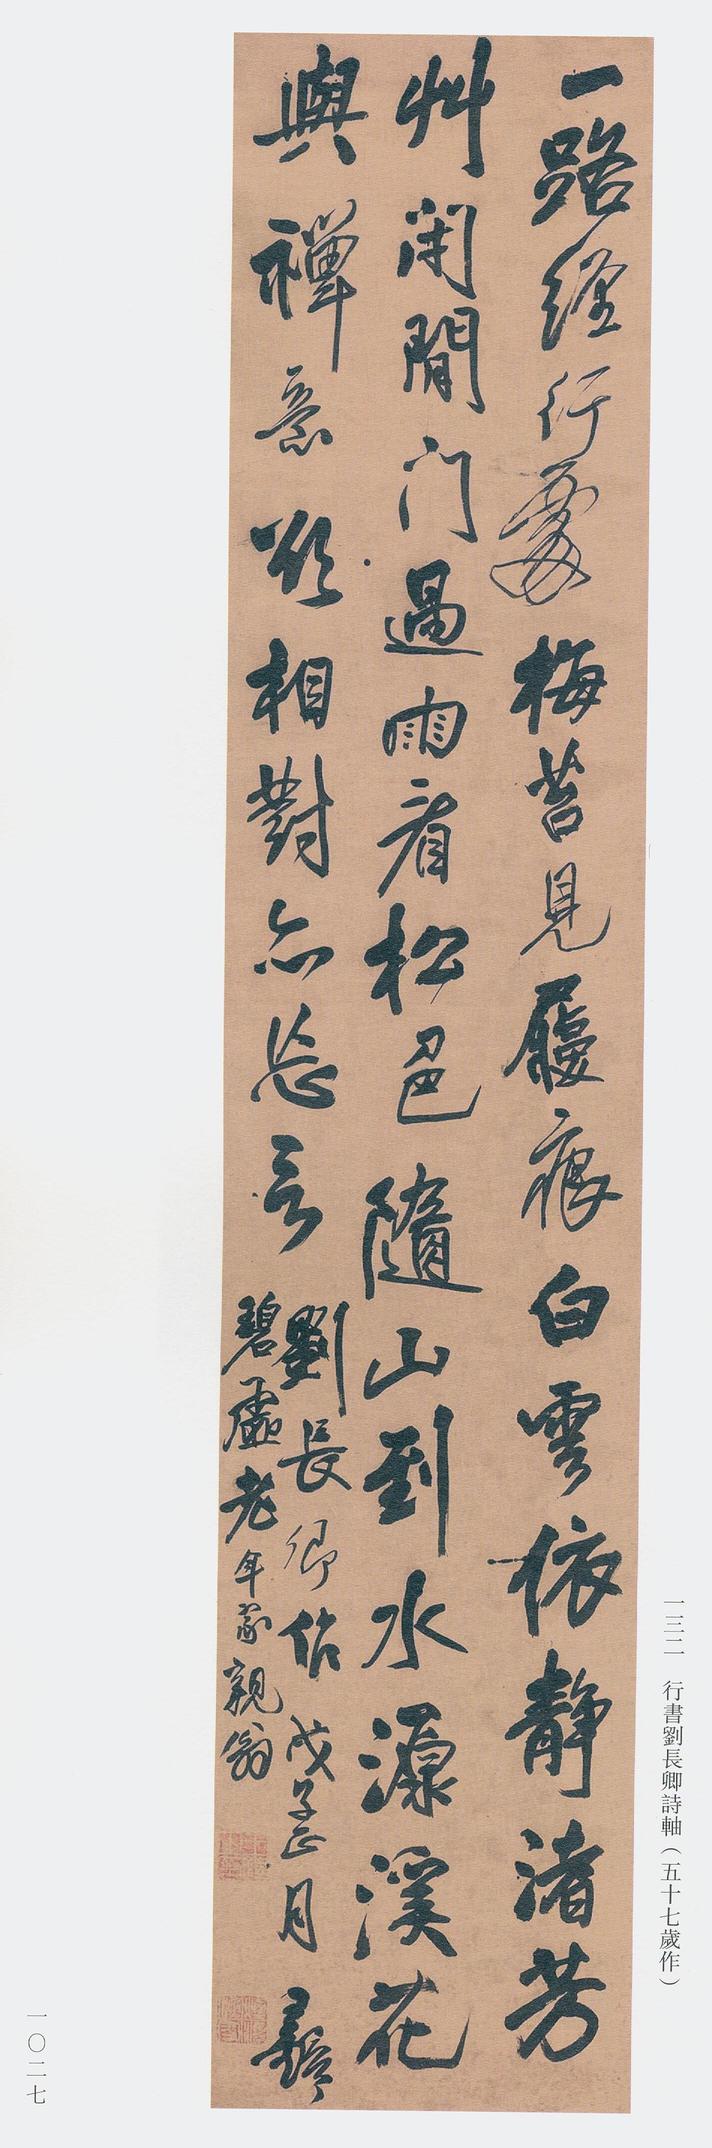 一路經行處梅苔見履痕白雲依靜渚芳
艸閑閒门過雨看松色隨山到水源溪花
與禪意欲相對亦忘言
劉長卿作戊子正月王鐸
碧虛老年家親翁
一三二 行書劉長卿詩軸（五十七歲作）
一〇二七